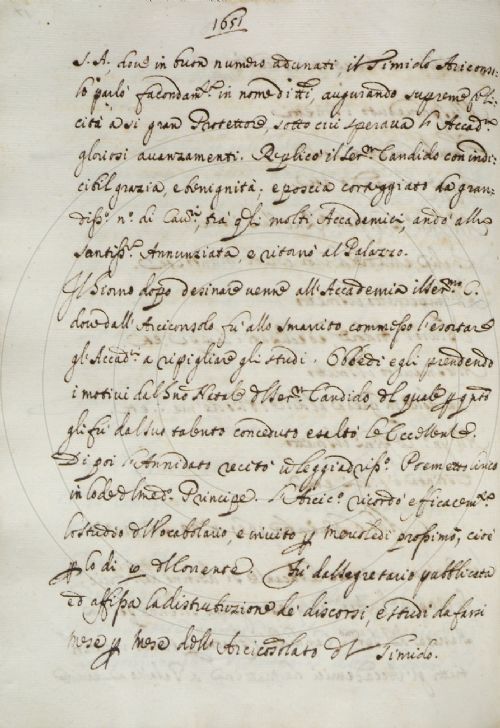 1651
S. A., dove in buon numero adunati, il Timido Aricons:
lo parlò facondam.te in nome di tti, augurando supreme feli
cità a sì gran Protettore, sotto cui sperava l'Accad.a
gloriosi avanzamenti. Replicò il Ser.mo Candido con indi:
cibil grazia, e benignità; e poscia corteggiato da gran:
diss.o n.o di Cav.ri, tra' qli molti Accademici, andò alla
Santiss.a Annunziata, e ritornò al Palazzo.
Il Giorno dopo desinare venne all'Accademia il Ser.mo C.
dove dall'Arciconsolo fù allo Smarrito commesso l'esortare
gl'Accad.ci a ripigliare gli studi. Obbedì egli prendendo
i motivi dal Natale del Ser.mo Candido del quale p qnto
gli fù dal suo talento conceduto esaltò le Eccellenze.
Di poi l'Annidato recitò leggiadriss.o Poemetto
in lode del mad.o Principe. L'Arcic.o ricordò efficacem.te
lo studio del Vocabolario, e invitò p mercoledì prossimo, cioè
p lo dì del corrente. Fù dal Segretario pubblicata
ed affissa la distribuzione de' discorsi, e studi da farsi
mese p mese dell'Arciconsolato del Timido.